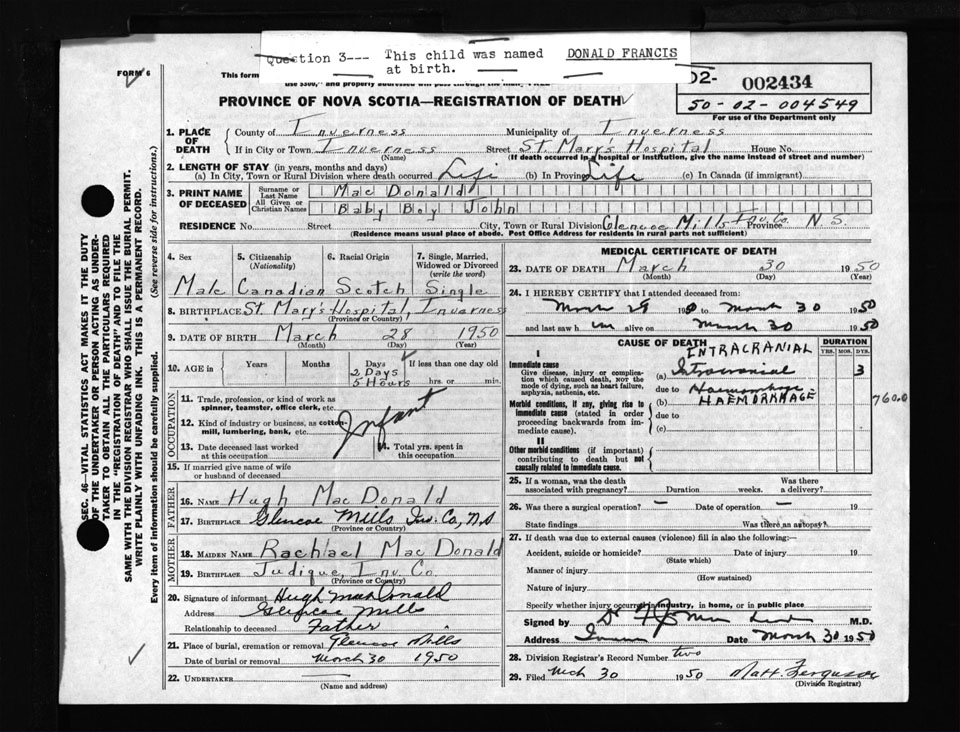 Question 3--- This child was named DONALD FRANCIS
at birth.
FORM 6
This form
use $300," and property addressed will pass through the mail, FREE
02- 002434
50-02-004549
For use of the Department only
PROVINCE OF NOVA SCOTIA—REGISTRATION OF DEATH
1. PLACE OF DEATH
County of Inverness Municipality of Inverness
If in City or Town Inverness Street St. Mary's Hospital House No.
(Name) (If death occurred in a hospital or institution, give the name instead of street and number)
2. LENGTH OF STAY (in years, months and days)
(a) In City, Town or Rural Division where death occurred Life (b) In Province Life (c) In Canada (if immigrant)
3. PRINT NAME OF DECEASED
Surname or Last Name Mac Donald
All Given or Christian Names Baby Boy John
RESIDENCE No. Street City, Town or Rural Division Glencoe Mills Inv. Co. Province N.S.
(Residence means usual place of abode. Post Office Address for residents in rural parts not sufficient)
4. Sex 5. Citizenship (Nationality) 6. Racial Origin 7. Single, Married, Widowed or Divorced (write the word)
Male Canadian Scotch Single
8. BIRTHPLACE St. Mary's Hospital, Inverness
(Province or Country)
9. DATE OF BIRTH March 28 1950
(Month) (Day) (Year)
10. AGE in Years Months Days If less than one day old
2 Days
5 Hours hrs. or min.
OCCUPATION
11. Trade, profession, or kind of work as spinner, teamster, office clerk, etc.
12. Kind of industry or business, as cotton-mill, lumbering, bank, etc.
Infant
13. Date deceased last worked at this occupation
14. Total yrs. spent in this occupation
15. If married give name of wife or husband of deceased
FATHER
16. NAME Hugh Mac Donald
17. BIRTHPLACE Glencoe Mills Inv. Co, N.S
(Province or Country)
MOTHER
18. MAIDEN NAME Rachael Mac Donald
19. BIRTHPLACE Judique, Inv. Co
(Province or Country)
20. Signature of informant Hugh MacDonald
Address Glencoe Mills
Relationship to deceased Father
21. Place of burial, cremation or removal Glencoe Mills
Date of burial or removal March 30 1950
22. UNDERTAKER
(Name and address)
MEDICAL CERTIFICATE OF DEATH
23. DATE OF DEATH March 30 1950
(Month) (Day) (Year)
24. I HEREBY CERTIFY that I attended deceased from:
March 29 1950 to March 30 1950
and last saw him alive on March 30 1950
CAUSE OF DEATH DURATION
YRS. MOS. DYS.
I
Immediate cause
Give disease, injury or complication which caused death, NOT the mode of dying, such as heart failure, asphyxia, asthenia, etc.
INTRACRANIAL
(a) Intracranial 3
due to Haemorrhage
(b) HAEMORRHAGE 760.0
Morbid conditions, if any, giving rise to immediate cause (stated in order proceeding backwards from immediate cause).
due to
(c)
II
Other morbid conditions (if important) contributing to death but not causally related to immediate cause.
25. If a woman, was the death associated with pregnancy? Duration weeks. Was there a delivery?
26. Was there a surgical operation? — Date of operation — 19
State findings Was there an autopsy?
27. If death was due to external causes (violence) fill in also the following:—
Accident, suicide or homicide? Date of injury 19
(State which)
Manner of injury
(How sustained)
Nature of injury
Specify whether injury occurred in industry, in home, or in public place
Signed by M.D.
Address Date March 30 1950
28. Division Registrar's Record Number two
29. Filed Mch 30 1950 Matt. Ferguson
(Division Registrar)
SEC. 46—VITAL STATISTICS ACT MAKES IT THE DUTY
OF THE UNDERTAKER OR PERSON ACTING AS UNDER-
TAKER TO OBTAIN ALL THE PARTICULARS REQUIRED
IN THE "REGISTRATION OF DEATH" AND TO FILE THE
SAME WITH THE DIVISION REGISTRAR WHO SHALL ISSUE THE BURIAL PERMIT.
WRITE PLAINLY WITH UNFADING INK. THIS IS A PERMANENT RECORD.
Every item of information should be carefully supplied. (See reverse side for instructions.)